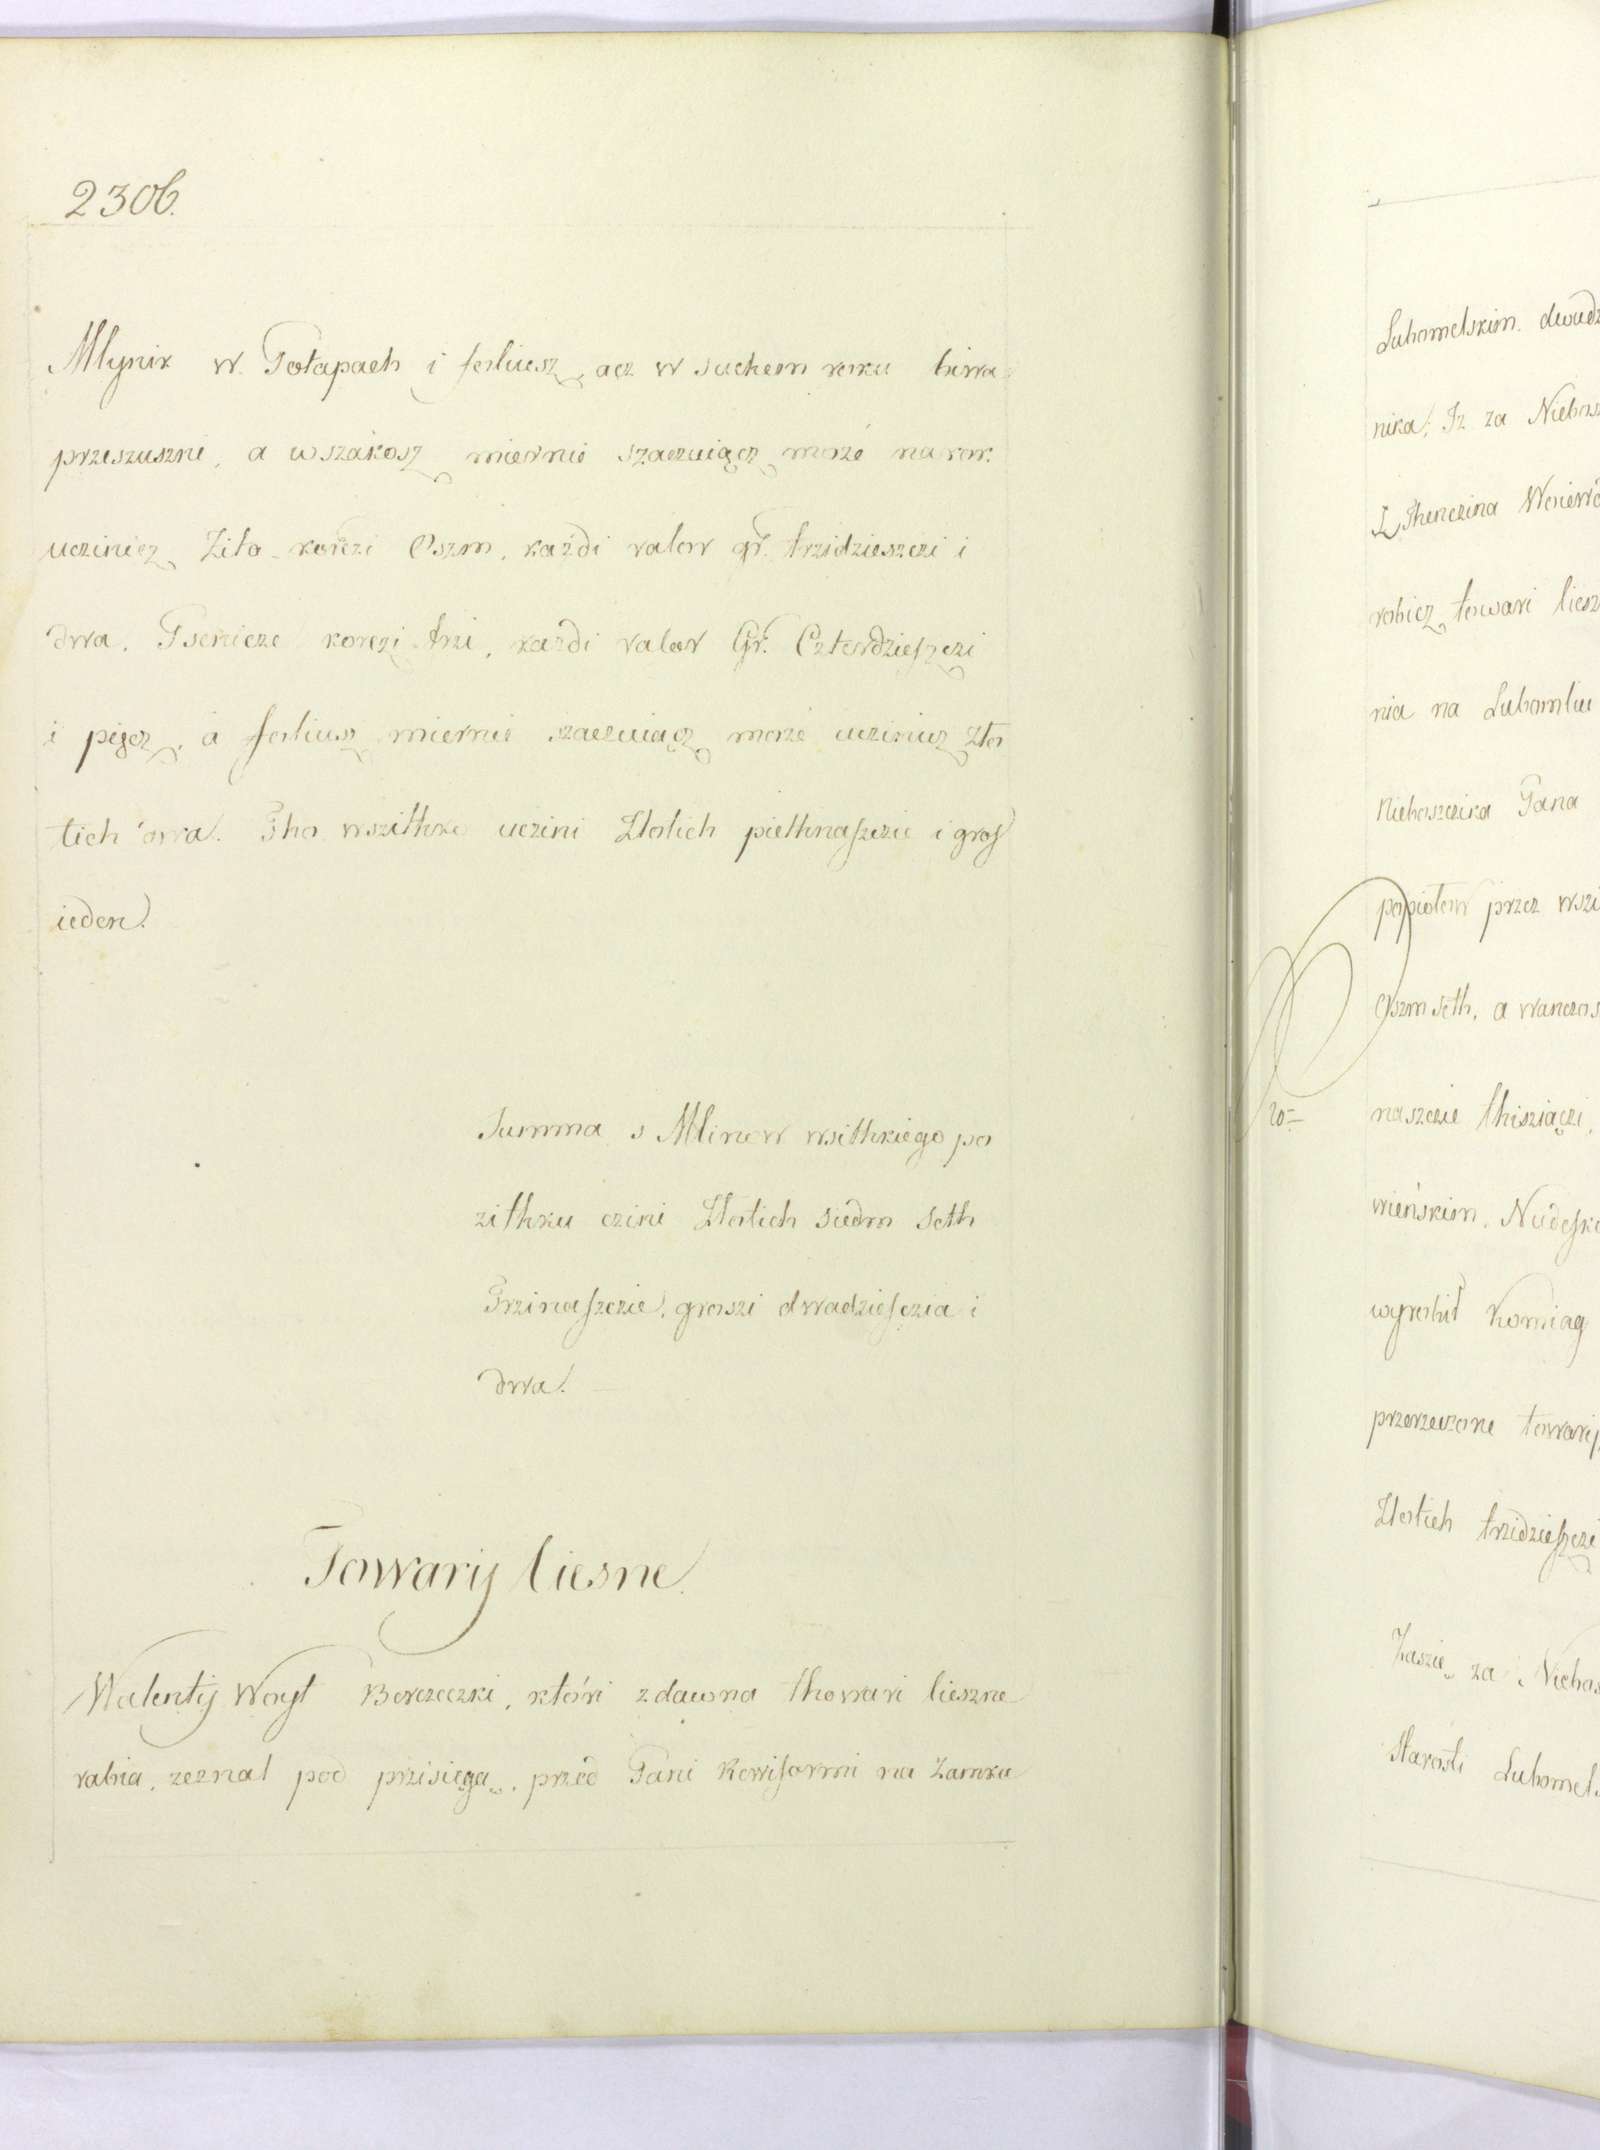 2306.
Mlynik w Połapach i foliusz, acz w suchem roku biwa
przeszuszni, a wszakosz miernie szaczuiącz może na rok
uczinicz Zito korczi Oszm, każdi valor gr. trzidzieszczi i
dwa. Psenicze korczi trzi, każdi valor Gr. Czterdzieszczi
i pięcz, a foliusz miernie szaczuiącz może uczinicz zło
tich dwa. Tho wszithko uczini Złotich piethnaszczie i gros
ieden.
Summa s Mlinow wsithkiego po
zithku czini Złotich siedm seth
Trzinaszczie, groszi dwadziesczia i
dwa. —
Towarij liesne.
Walentij Woyt Borczeczki, któri zdawna thowari lieszne
rabia, zeznal pod przisięgą, przed Pani Rewisormi na Zamku
Lubomelskim dwudz
nika, Iz za Niebos
Z Thenczina Woiewo
robicz towari liesz
nia na Lubomliu
Nieboszczika Pana
popiołow przez wszi
Oszm seth, a wanczos
naszczie thisziączi,
wieńskim, Nudesk
wyrobił Komiag
przerzeczone towarij
Złotich trzidzieszczi
Zaszię za Niebos
Starosti Lubomels